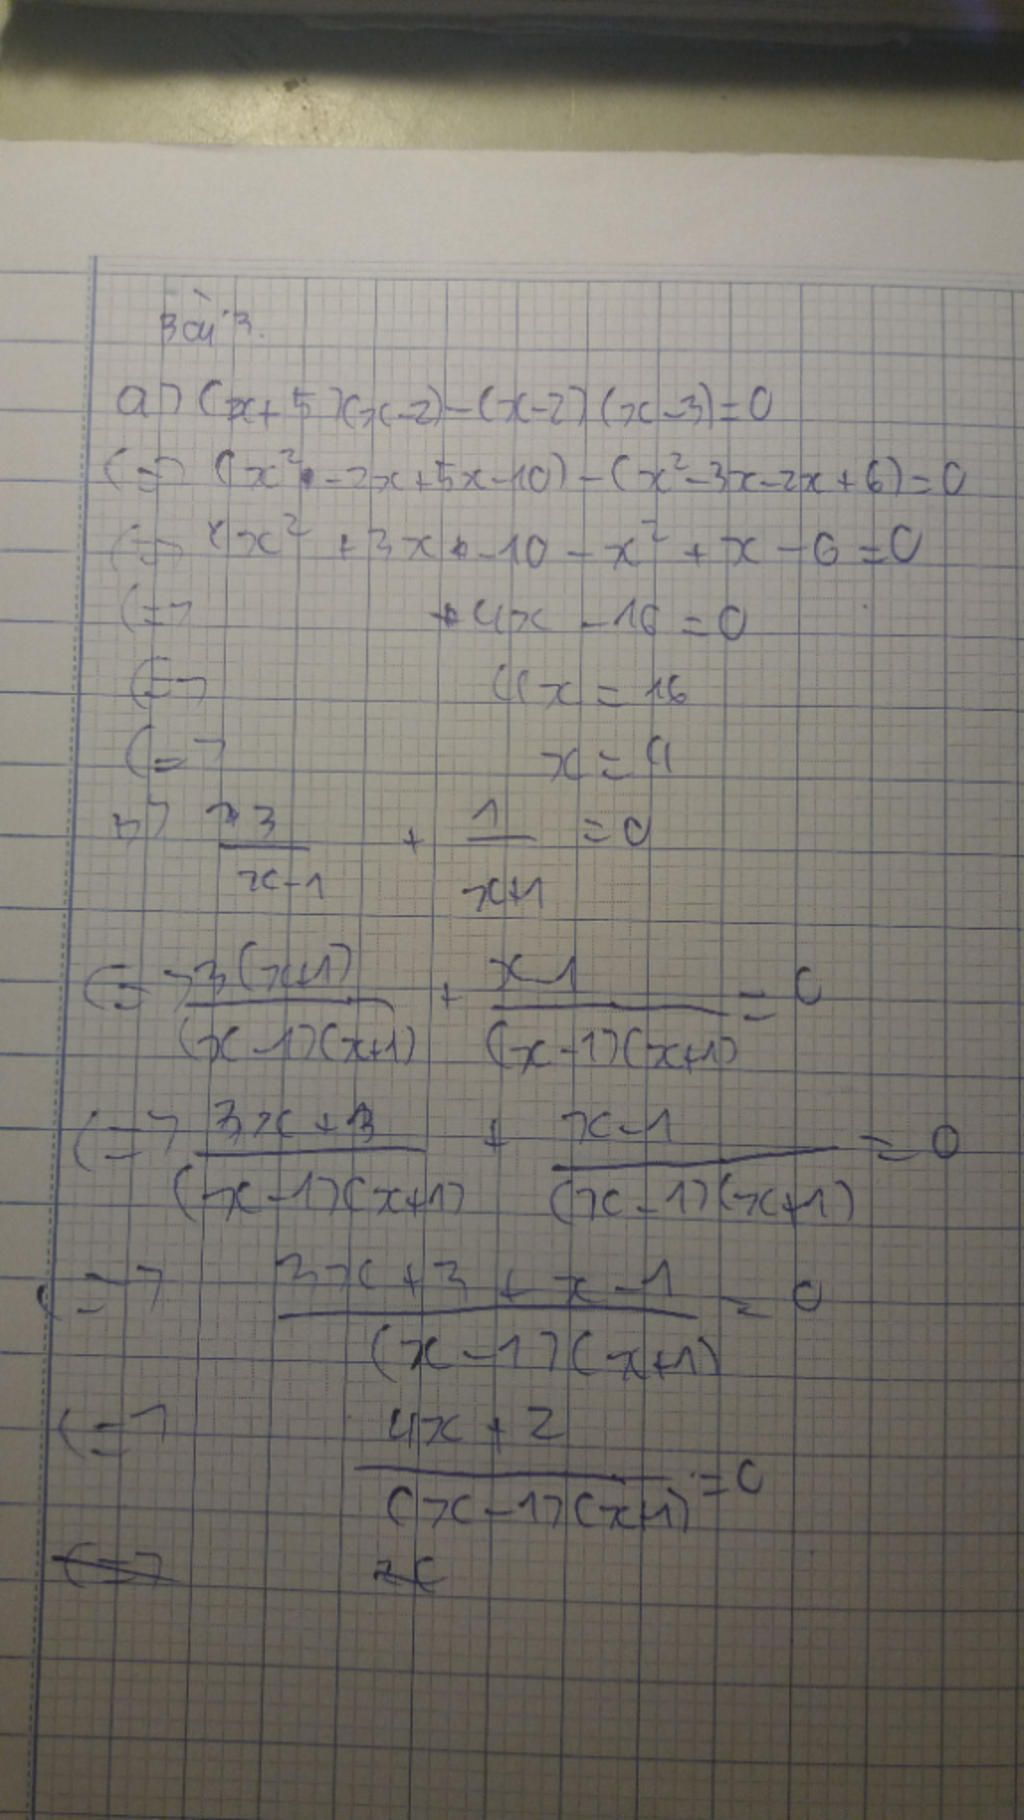 Bài 3.
a) (x+5)(x-2)-(x-2)(x-3)=0
(=) (x² -2x+5x-10)-(x²-3x-2x+6)=0
(=) x² +3x -10 - x² + x - 6 =0
(=) 4x -16 =0
(=) 4x = 16
(=) x = 4
b) 3/(x-1) + 1/(x+1) =0
(=) 3(x+1)/((x-1)(x+1)) + (x-1)/((x-1)(x+1)) = 0
(=) (3x+3)/((x-1)(x+1)) + (x-1)/((x-1)(x+1)) = 0
(=) (3x+3+x-1)/((x-1)(x+1)) = 0
(=) (4x+2)/((x-1)(x+1)) =0
(=)